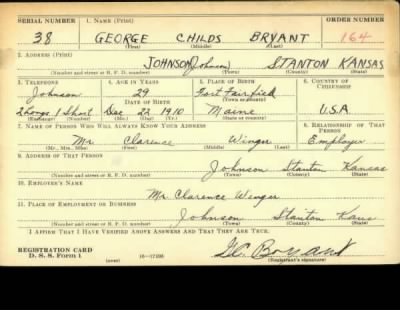 SERIAL NUMBER 1. NAME (Print) ORDER NUMBER
38 GEORGE CHILDS BRYANT 164
(First) (Middle) (Last)
2. ADDRESS (Print)
JOHNSON Johnson STANTON KANSAS
(Number and street or R. F. D. number) (Town) (County) (State)
3. TELEPHONE 4. AGE IN YEARS 5. PLACE OF BIRTH 6. COUNTRY OF CITIZENSHIP
Johnson 29 Fort Fairfield
DATE OF BIRTH (Town or county)
2 Longs 1 Short Dec 22 1910 Maine U.S.A.
(Exchange) (Number) (Mo.) (Day) (Yr.) (State or country)
7. NAME OF PERSON WHO WILL ALWAYS KNOW YOUR ADDRESS 8. RELATIONSHIP OF THAT PERSON
Mr. Clarence Winger Employer
(Mr., Mrs., Miss) (First) (Middle) (Last)
9. ADDRESS OF THAT PERSON
Johnson Stanton Kansas
(Number and street or R. F. D. number) (Town) (County) (State)
10. EMPLOYER'S NAME
Mr. Clarence Winger
11. PLACE OF EMPLOYMENT OR BUSINESS
Johnson Stanton Kans
(Number and street or R. F. D. number) (Town) (County) (State)
I AFFIRM THAT I HAVE VERIFIED ABOVE ANSWERS AND THAT THEY ARE TRUE.
REGISTRATION CARD
D. S. S. Form 1 16—17105 G.C. Bryant
(Registrant's signature)